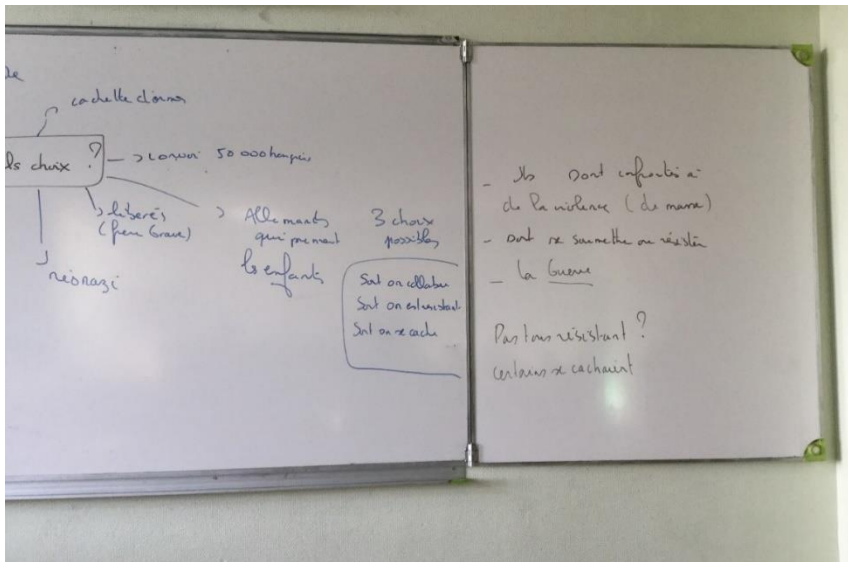 cachette d'armes
ls choix ?
50 000 français
libérés
(peu Grave)
néonazi
Allemants
qui prennent
les enfants
3 choix
possibles
Soit on collabore
Soit on est resistant
Soit on se cache
- Ils sont confrontés à
de la violence (de masse)
- soit se soumettre ou résister
- la Guerre
Pas tous résistant ?
certains se cachaient